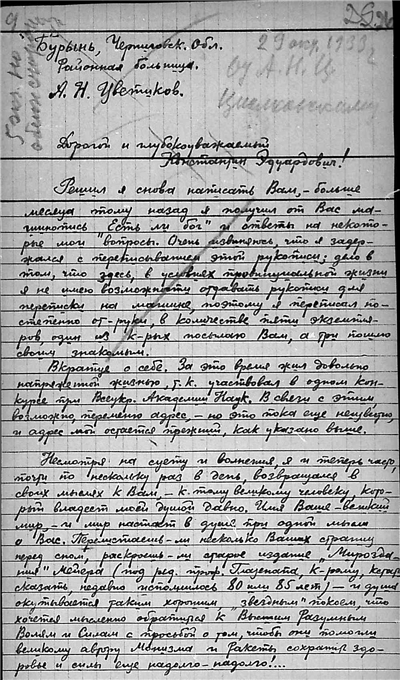 29 окт. 1933 г.
от А.Н.Ц.
Циолковскому
Бурынь, Черниговск. Обл.
Районная больница.
А. Н. Цветиков.
Дорогой и глубокоуважаемый
Константин Эдуардович!
Решил я снова написать Вам, – больше
месяца тому назад я получил от Вас ма-
шинопись "Есть ли бог" и ответы на некото-
рые мои вопросы. Очень извиняюсь, что я задер-
жался с переписыванием этой рукописи: дело в
том, что здесь, в условиях провинциальной жизни
я не имею возможности отдавать рукописи для
переписки на машине, поэтому я переписал по-
степенно от-руки, в количестве пяти экземпля-
ров, один из к-рых посылаю Вам, а три пошлю
своим знакомым.
Вкратце о себе. За это время жил довольно
напряженной жизнью, т.к. участвовал в одном кон-
курсе при Всеукр. Академии Наук. В связи с этим
возможно, переменю адрес, – но это пока еще неизвестно,
и адрес мой остается прежний, как указано выше.
Несмотря на суету и волнения, я и теперь часто,
почти по нескольку раз в день, возвращался в
своих мыслях к Вам, – к тому великому человеку, кото-
рый владеет моей душой давно. Имя Ваше – великий
мир, – и мир настает в душе при одной мысли
о Вас. Перелистаешь-ли несколько Ваших страниц
перед сном, раскроешь-ли старое издание "Мирозда-
ния" Мейера (под ред. проф. Глазенапа, к-рому, кстати
сказать недавно исполнилось 80 или 85 лет!) – и душа
окутывается таким хорошим "звездным" покоем, что
хочется мысленно обратиться к Высшим Разумным
Волям и Силам с просьбой о том, чтобы они помогли
великому автору Монизма и Ракеты сохранить здо-
ровье и силы еще надолго-надолго!...